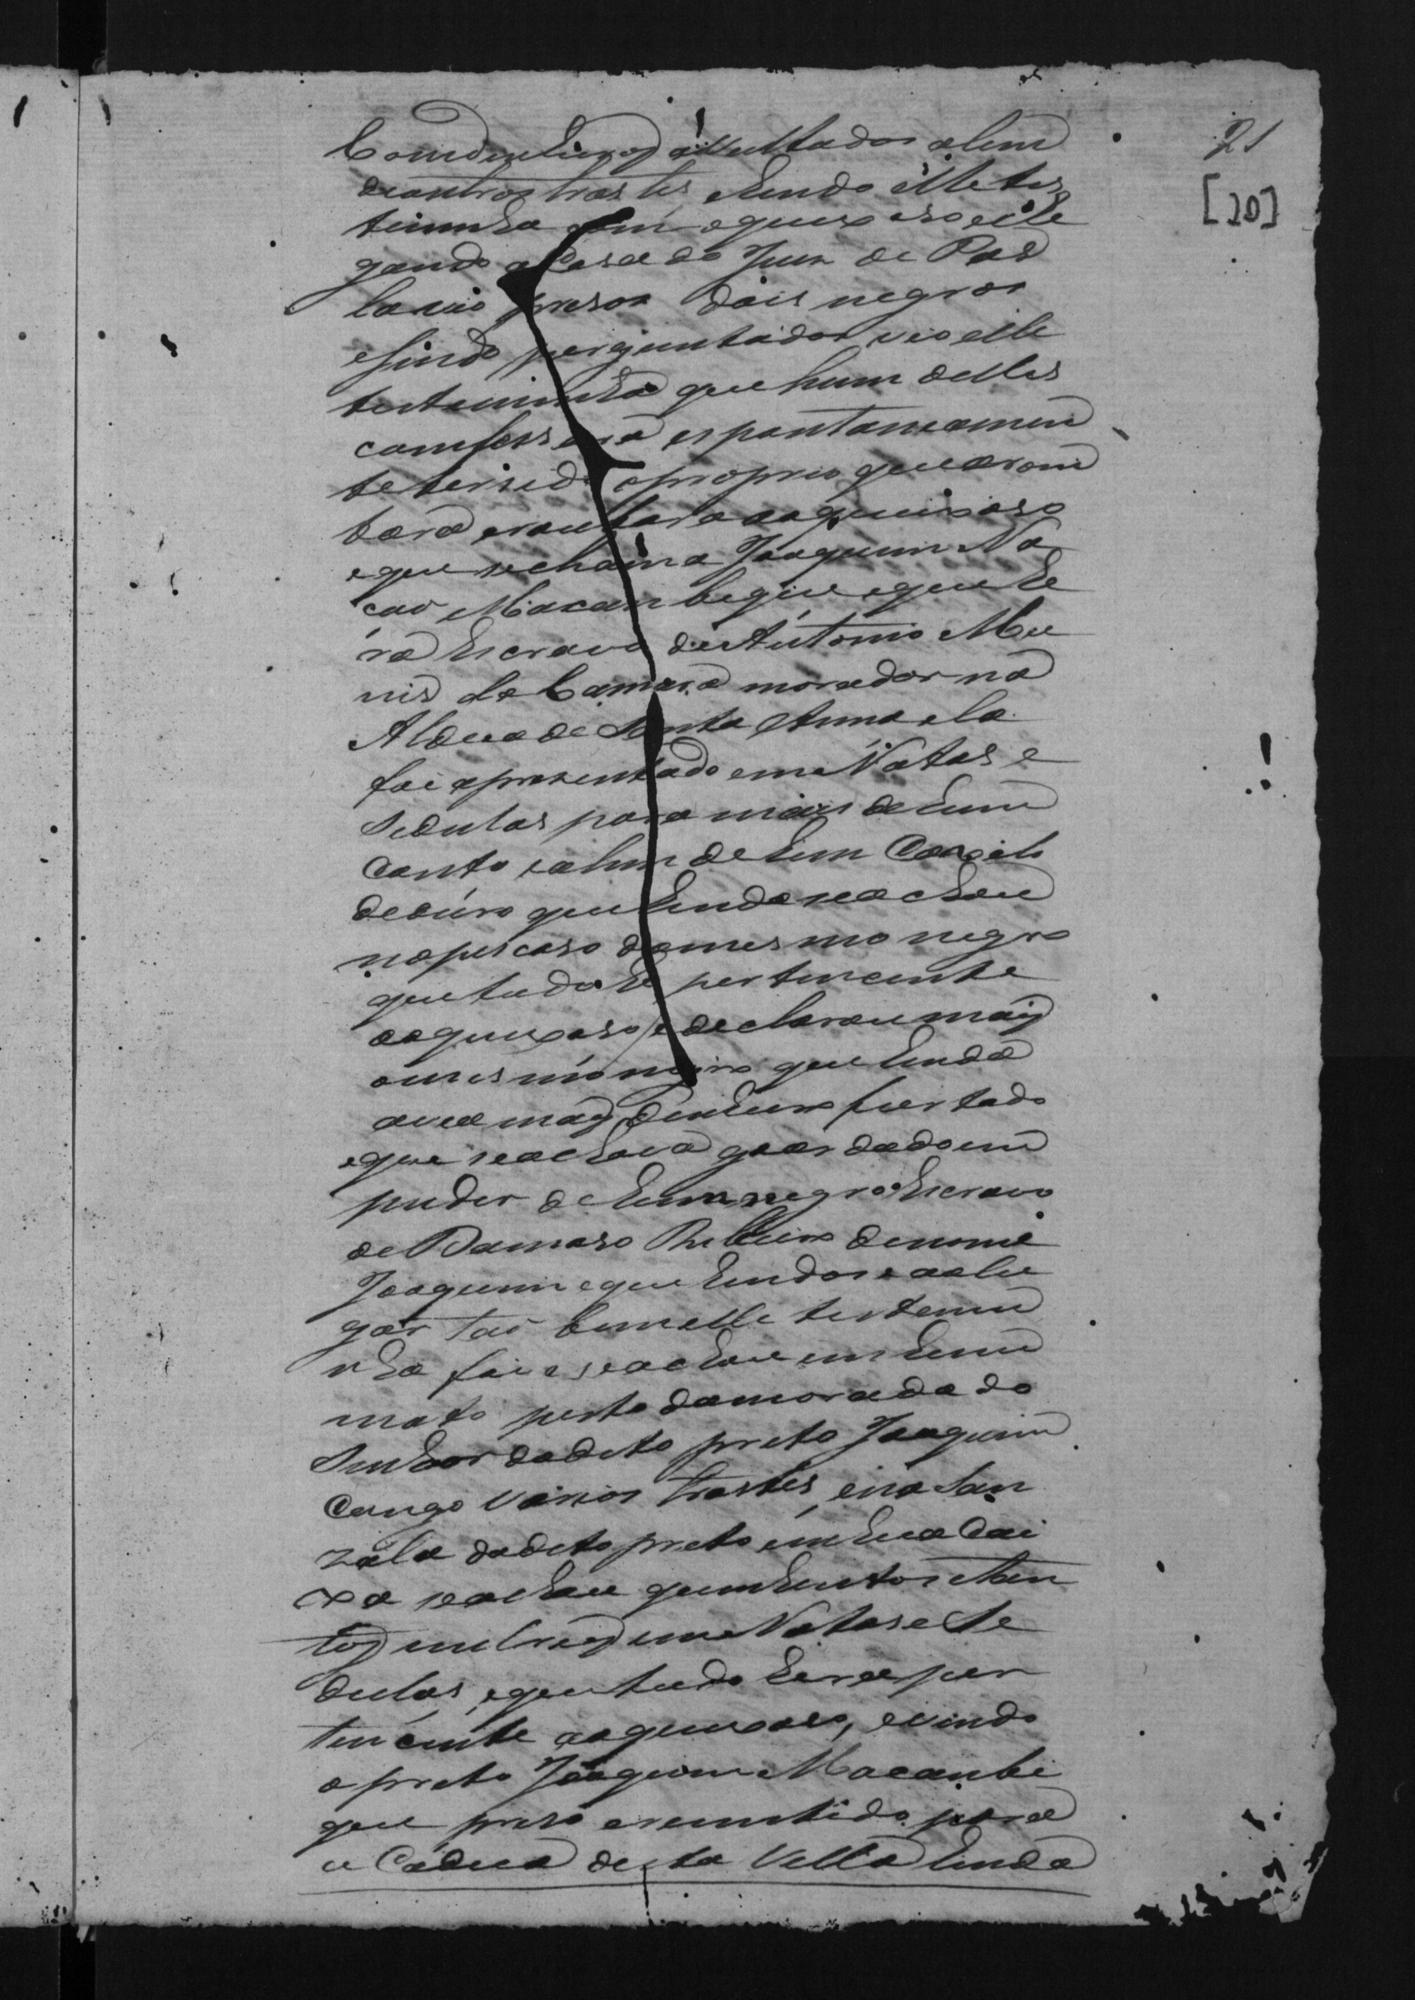 21
[20]
Com dinheiros avultados alem
de outros trastes e hindo elle tes
timunha com o queixoso e che
gando a Casa do Juiz de Pas
la vio presos dois negros
e sindo perguntados vio elle
testimunha que hum delles
comfessara espontaneamen
te ter sido o proprio que arom
bara e roubara ao queixoso
e que se chama Joaquim Na
cao Macambique e que he
ra Escravo de Antonio Mu
nis da Camara morador na
Aldeia de Santa Anna e la
foi apresentado em Notas e
sedulas para mais de hum
conto e alem de hum Cordão
de oiro que hinda se achou
no pescoso do mesmo negro
que tudo he pertencente
ao queixoso e declarou mais
o mesmo negro que hinda
avia mais dinheiro furtado
e que se achava goardado em
puder de hum negro Escravo
de Damaso Ribeiro de nome
Joaquim e que hindo se ao lu
gar tão bem elle testemu
nha foi e se achou em hum
mato perto da morada do
Senhor do dito preto Joaquim
Congo varios trastes, e na San
zala do dito preto em hua Cai
xa se achou quinhentos e tan
tos mil reis em Notas e Se
dulas, e que tudo hera per
tencente ao queixoso, e vindo
o preto Joaquim Macambi
que preso e remetido para
a Cadeia desta Villa hinda